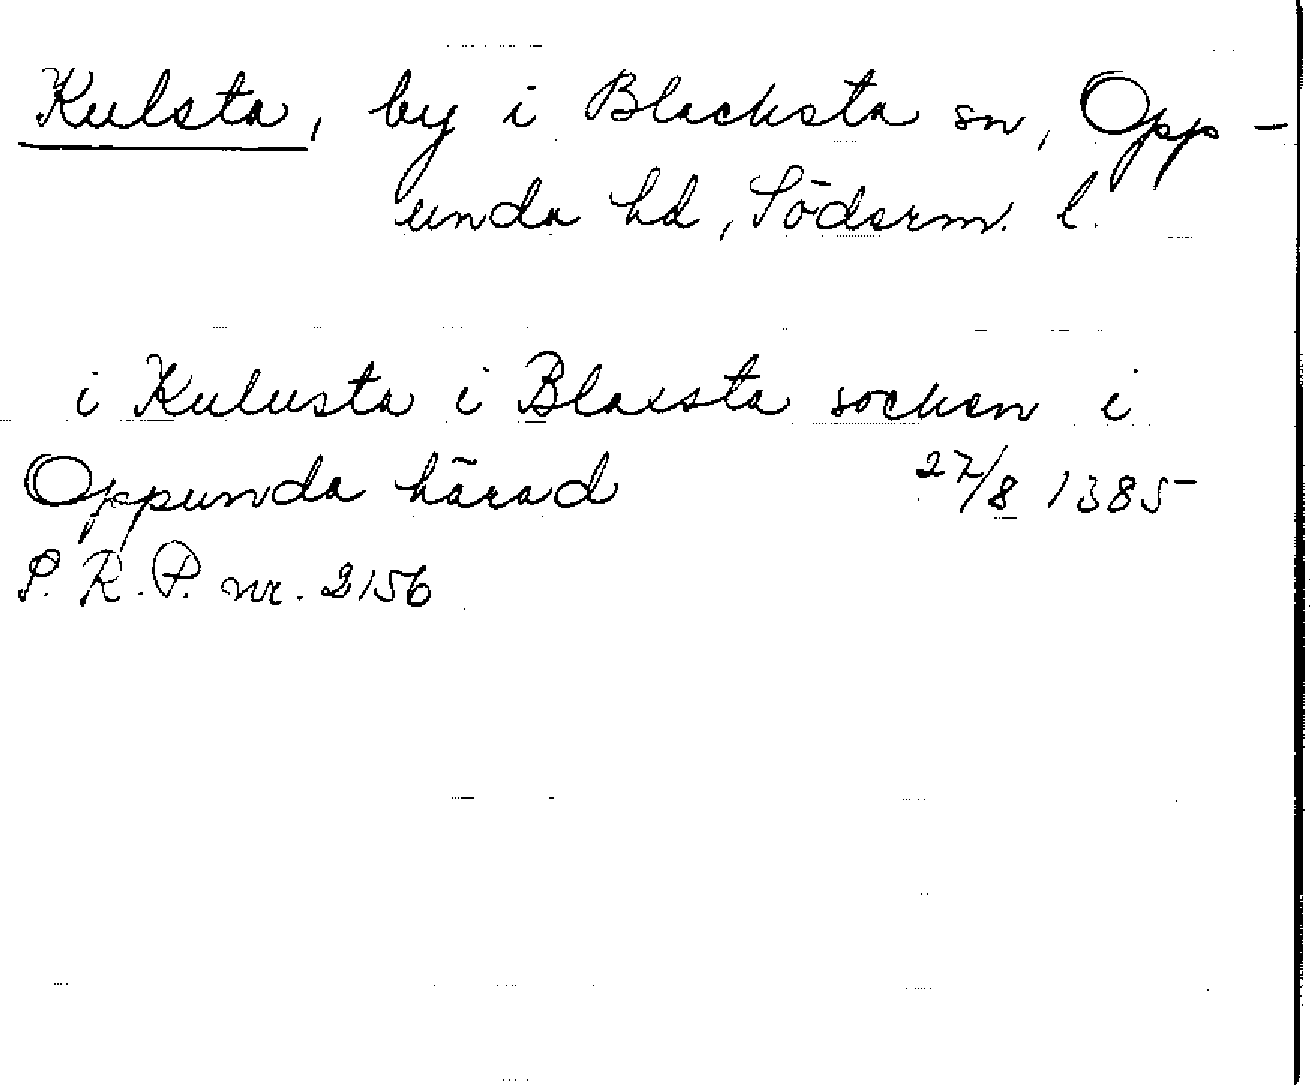 Kulsta, by i Blacksta sn, Opp-
unda hd, Söderm. l.
i Kulusta i Blaxsta socken i
Oppunda härad 27/8 1385
S. R. P. nr. 2156